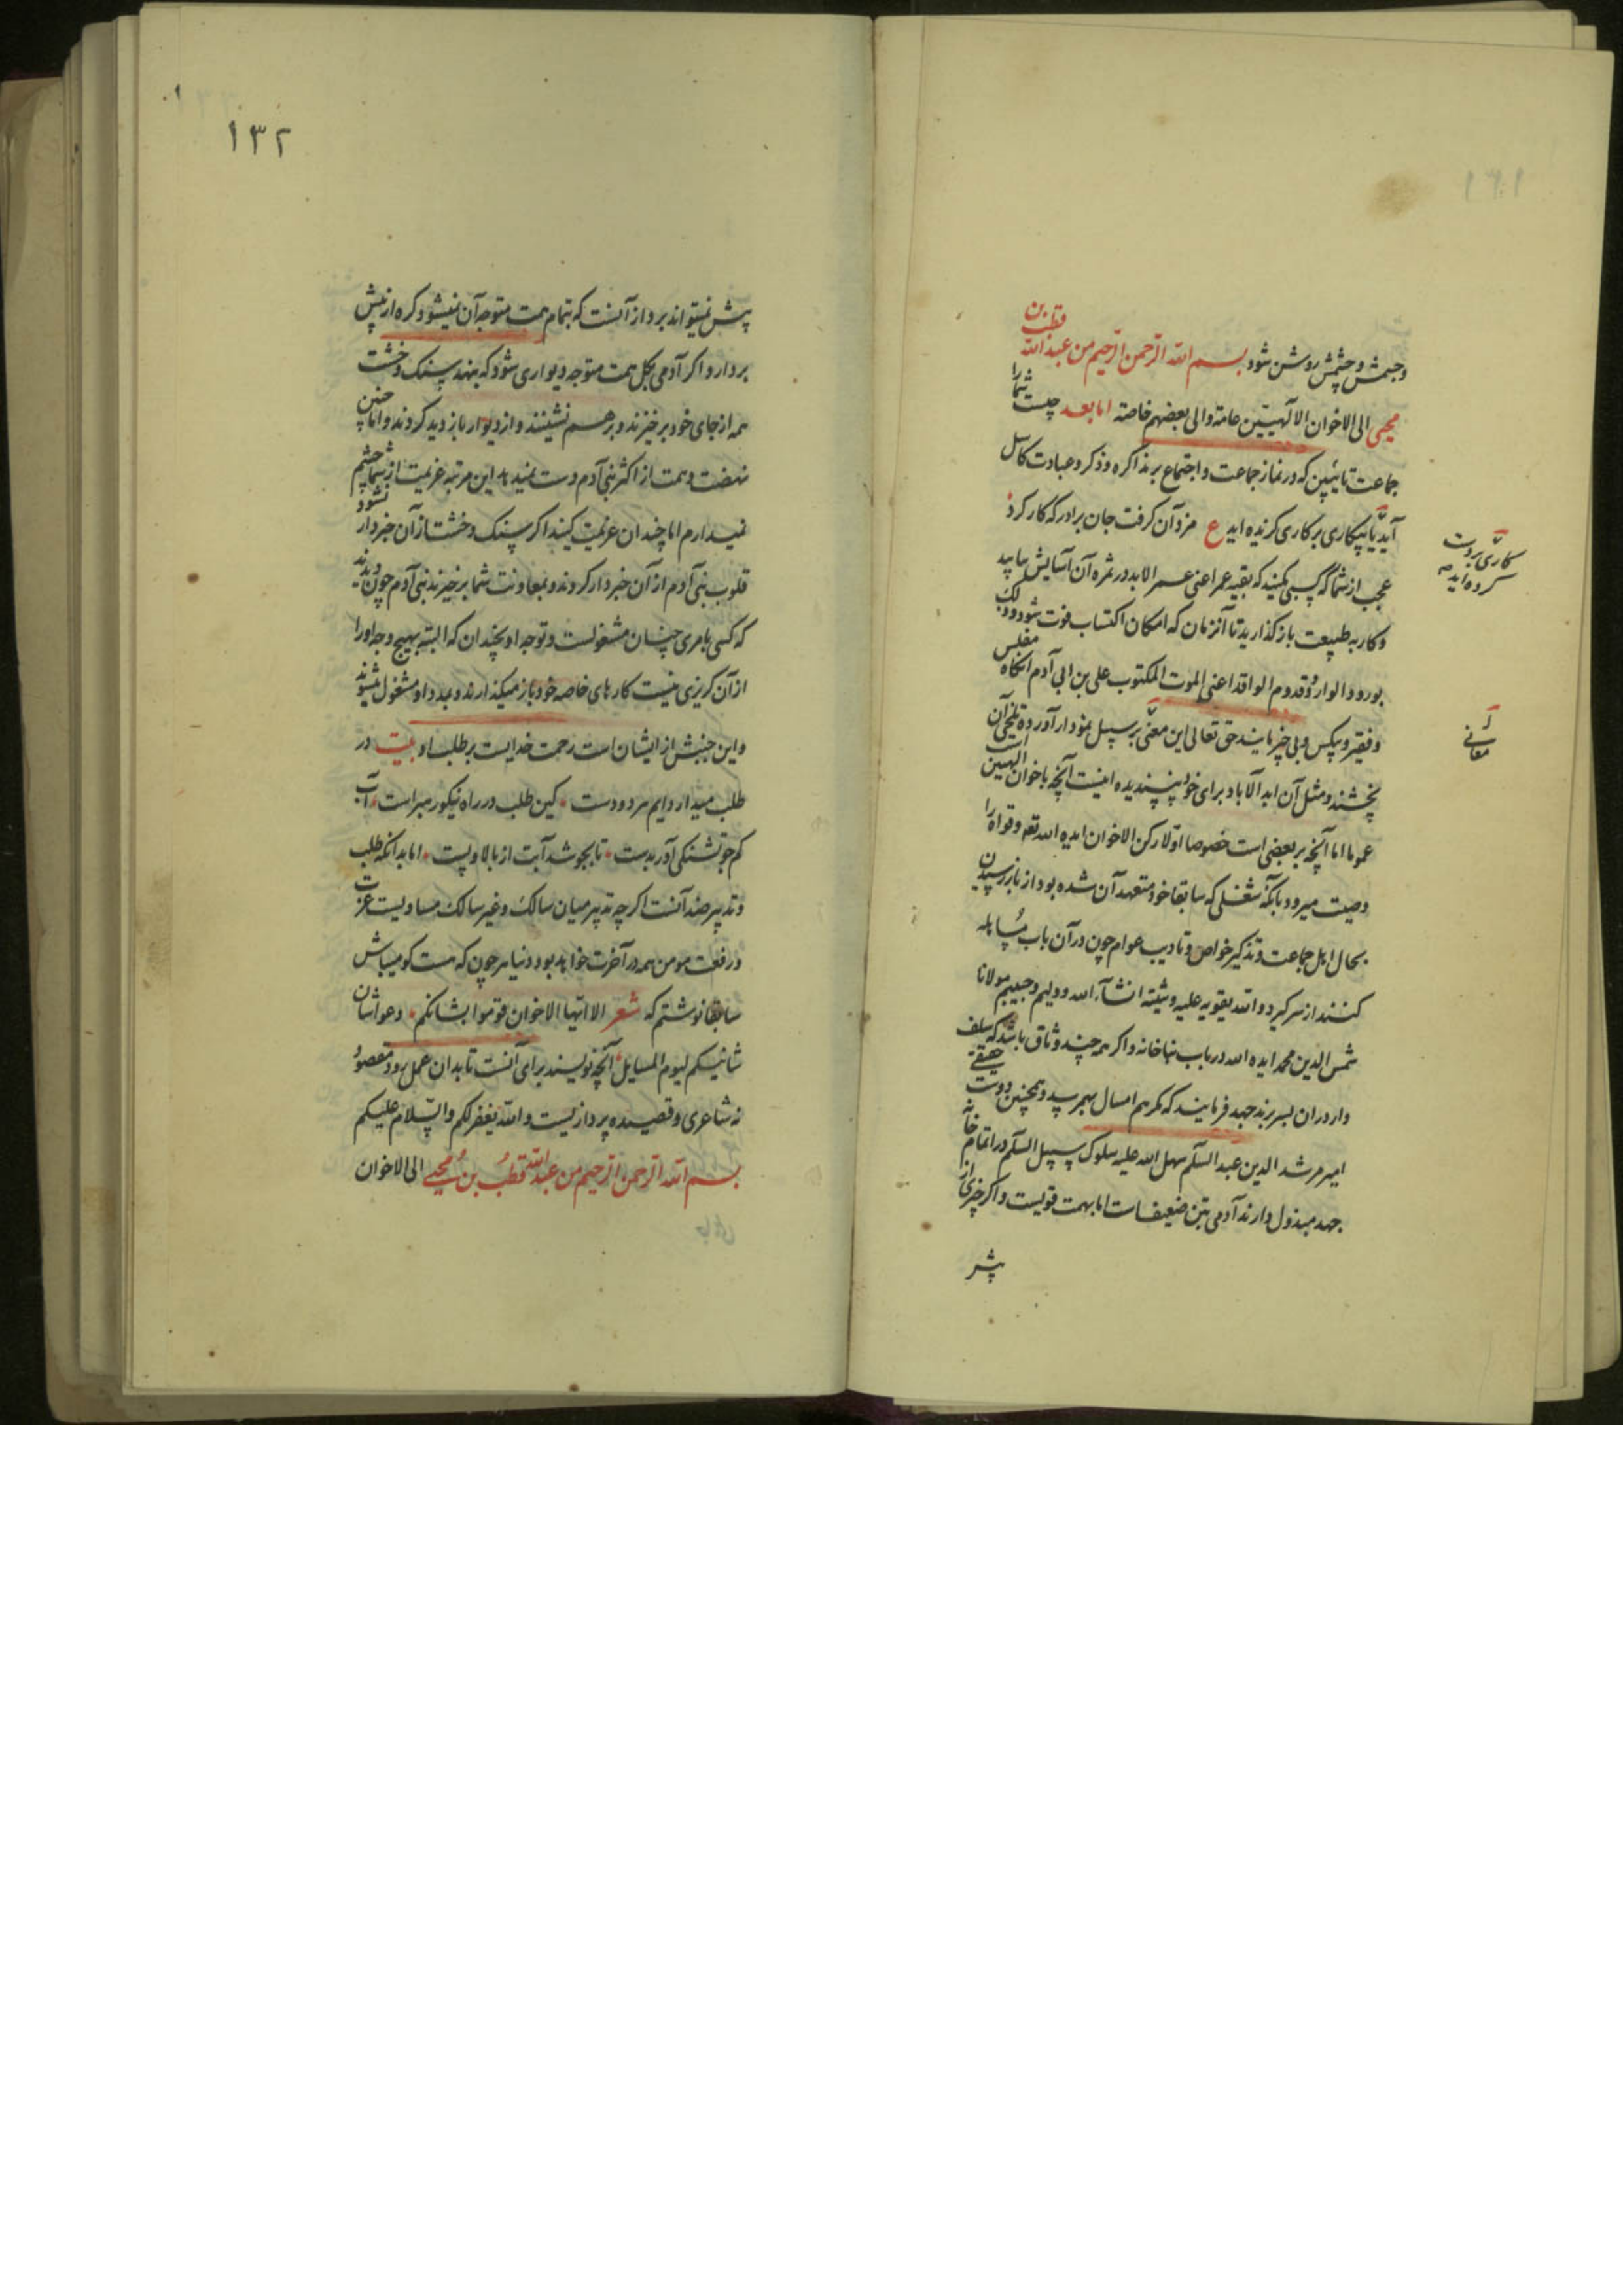 وجبش و چشمش روشن شود بسم الله الرحمن الرحیم من عبد الله قطب بن
محیی الی الاخوان الالهیین عامة والی بعضهم خاصة اما بعد چیست شما را
جماعت تایبین که در نماز جماعت و اجتماع بر مذاکره و ذکر و عبادت کاسل
آید یا بیکاری بر کاری کزیده اید ع مزد آن گرفت جان برادر که کار کرد
عجب از شما که کسبی نمیکنید که بقیه عمر اعنی عمر الابد در ثمره آن آسایش یابید
و کار به طبیعت باز کذارید تا آنزمان که امکان اکتساب فوت شود و ذلک
بورود الوارد و قدوم الوافد اعنی الموت المکتوب علی بنی آدم آنگاه مفلس
و فقیر و بیکس و بی چیز مانید حق تعالی این معنی بر سبیل نمودار آورده تلخی آن
بچشند و مثل آن ابد الآباد برای خود نپسندید اینست آنچه با خوان الهیین است
عموما اما آنچه بر بعضی است خصوصا اولا رکن الاخوان ایده الله تعه و قواه را
وصیت میرود بآنکه شغلی که سابقا خود متعهد آن شده بود از باز رسیدن
بحال اهل جماعت و تذکیر خواص و تادیب عوام چون در آن باب مساهله
کنند از سر گیرد و الله یقویه علیه و یثبته انشآء الله و دلیم و حبیبم مولانا
شمس الدین محمد ایده الله در باب بنا خانه و اگر همه چند وثاق باشد که سلف
وار در آن بسر برند جهد فرمایند که مگر هم امسال بهم رسد و همچنین دوست حقیقی
امیر مرشد الدین عبد السلم سهل الله علیه سلوک سبیل السلم در اتمام خانه
جهد مبذول دارند آدمی بتن ضعیفست اما بهمت قویست و اگر چیزی از
پش
کاری بروت
کرده اید
معانی
۱۳۲
پیش نمیتواند برد از آنست که بتمام همت متوجه آن نمیشود و کره از پیش
بردارد اگر آدمی بکل همت متوجه دیواری شود که بنهد سنک و خشت
همه از جای خود برخیزند و بر هم نشینند و از دیوار باز دید کردند و اما چنین
نهضت و همت از اکثر بنی آدم دست نمیدهد این مرتبه عزیمت از شما چشم
نمیدارم اما چندان عزیمت کنید اگر سنک و خشت از آن خبردار نشود
قلوب بنی آدم از آن خبردار کردند و بمعاونت شما برخیزند بنی آدم چون دیدند
که کسی بامری چنان مشغولست و توجه او بچندان که البته بهیچ وجه او را
از آن کریزی نیست کارهای خاصه خود باز میکذارند و بمدد او مشغول میشوند
و این جنبش از ایشان است رحمت خدایست بر طلب او بیت در
طلب میدار دایم مر دو دست کین طلب در راه نیکو رهبر است آب
کم جو تشنکی آور بدست تا بجوشد آبت از بالا و پست اما بدآنکه طلب
و تدبیر ضد آنست اگر چه تدبیر میان سالک و غیر سالک مساویست عزت
و رفعت مومن همه در آخرت خواهد بود دنیا هر چون که هست کو میباش
سابقا نوشتم که شعر الا ایها الاخوان قوموا بشانکم دعوا شان
شانیکم لیوم المسایل آنچه نویسند برای آنست تا بدان عمل رود مقصود
نه شاعری و قصیده پردازیست و الله یغفر لکم و السلام علیکم
بسم الله الرحمن الرحیم من عبد الله قطب بن محیی الی الاخوان